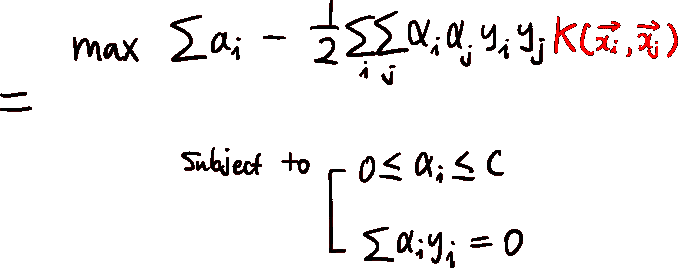 max ∑αᵢ − 1/2 ∑ᵢ∑ⱼ αᵢ αⱼ yᵢ yⱼ K(x⃗ᵢ, x⃗ⱼ)
=
Subject to 0 ≤ αᵢ ≤ C
∑αᵢyᵢ = 0